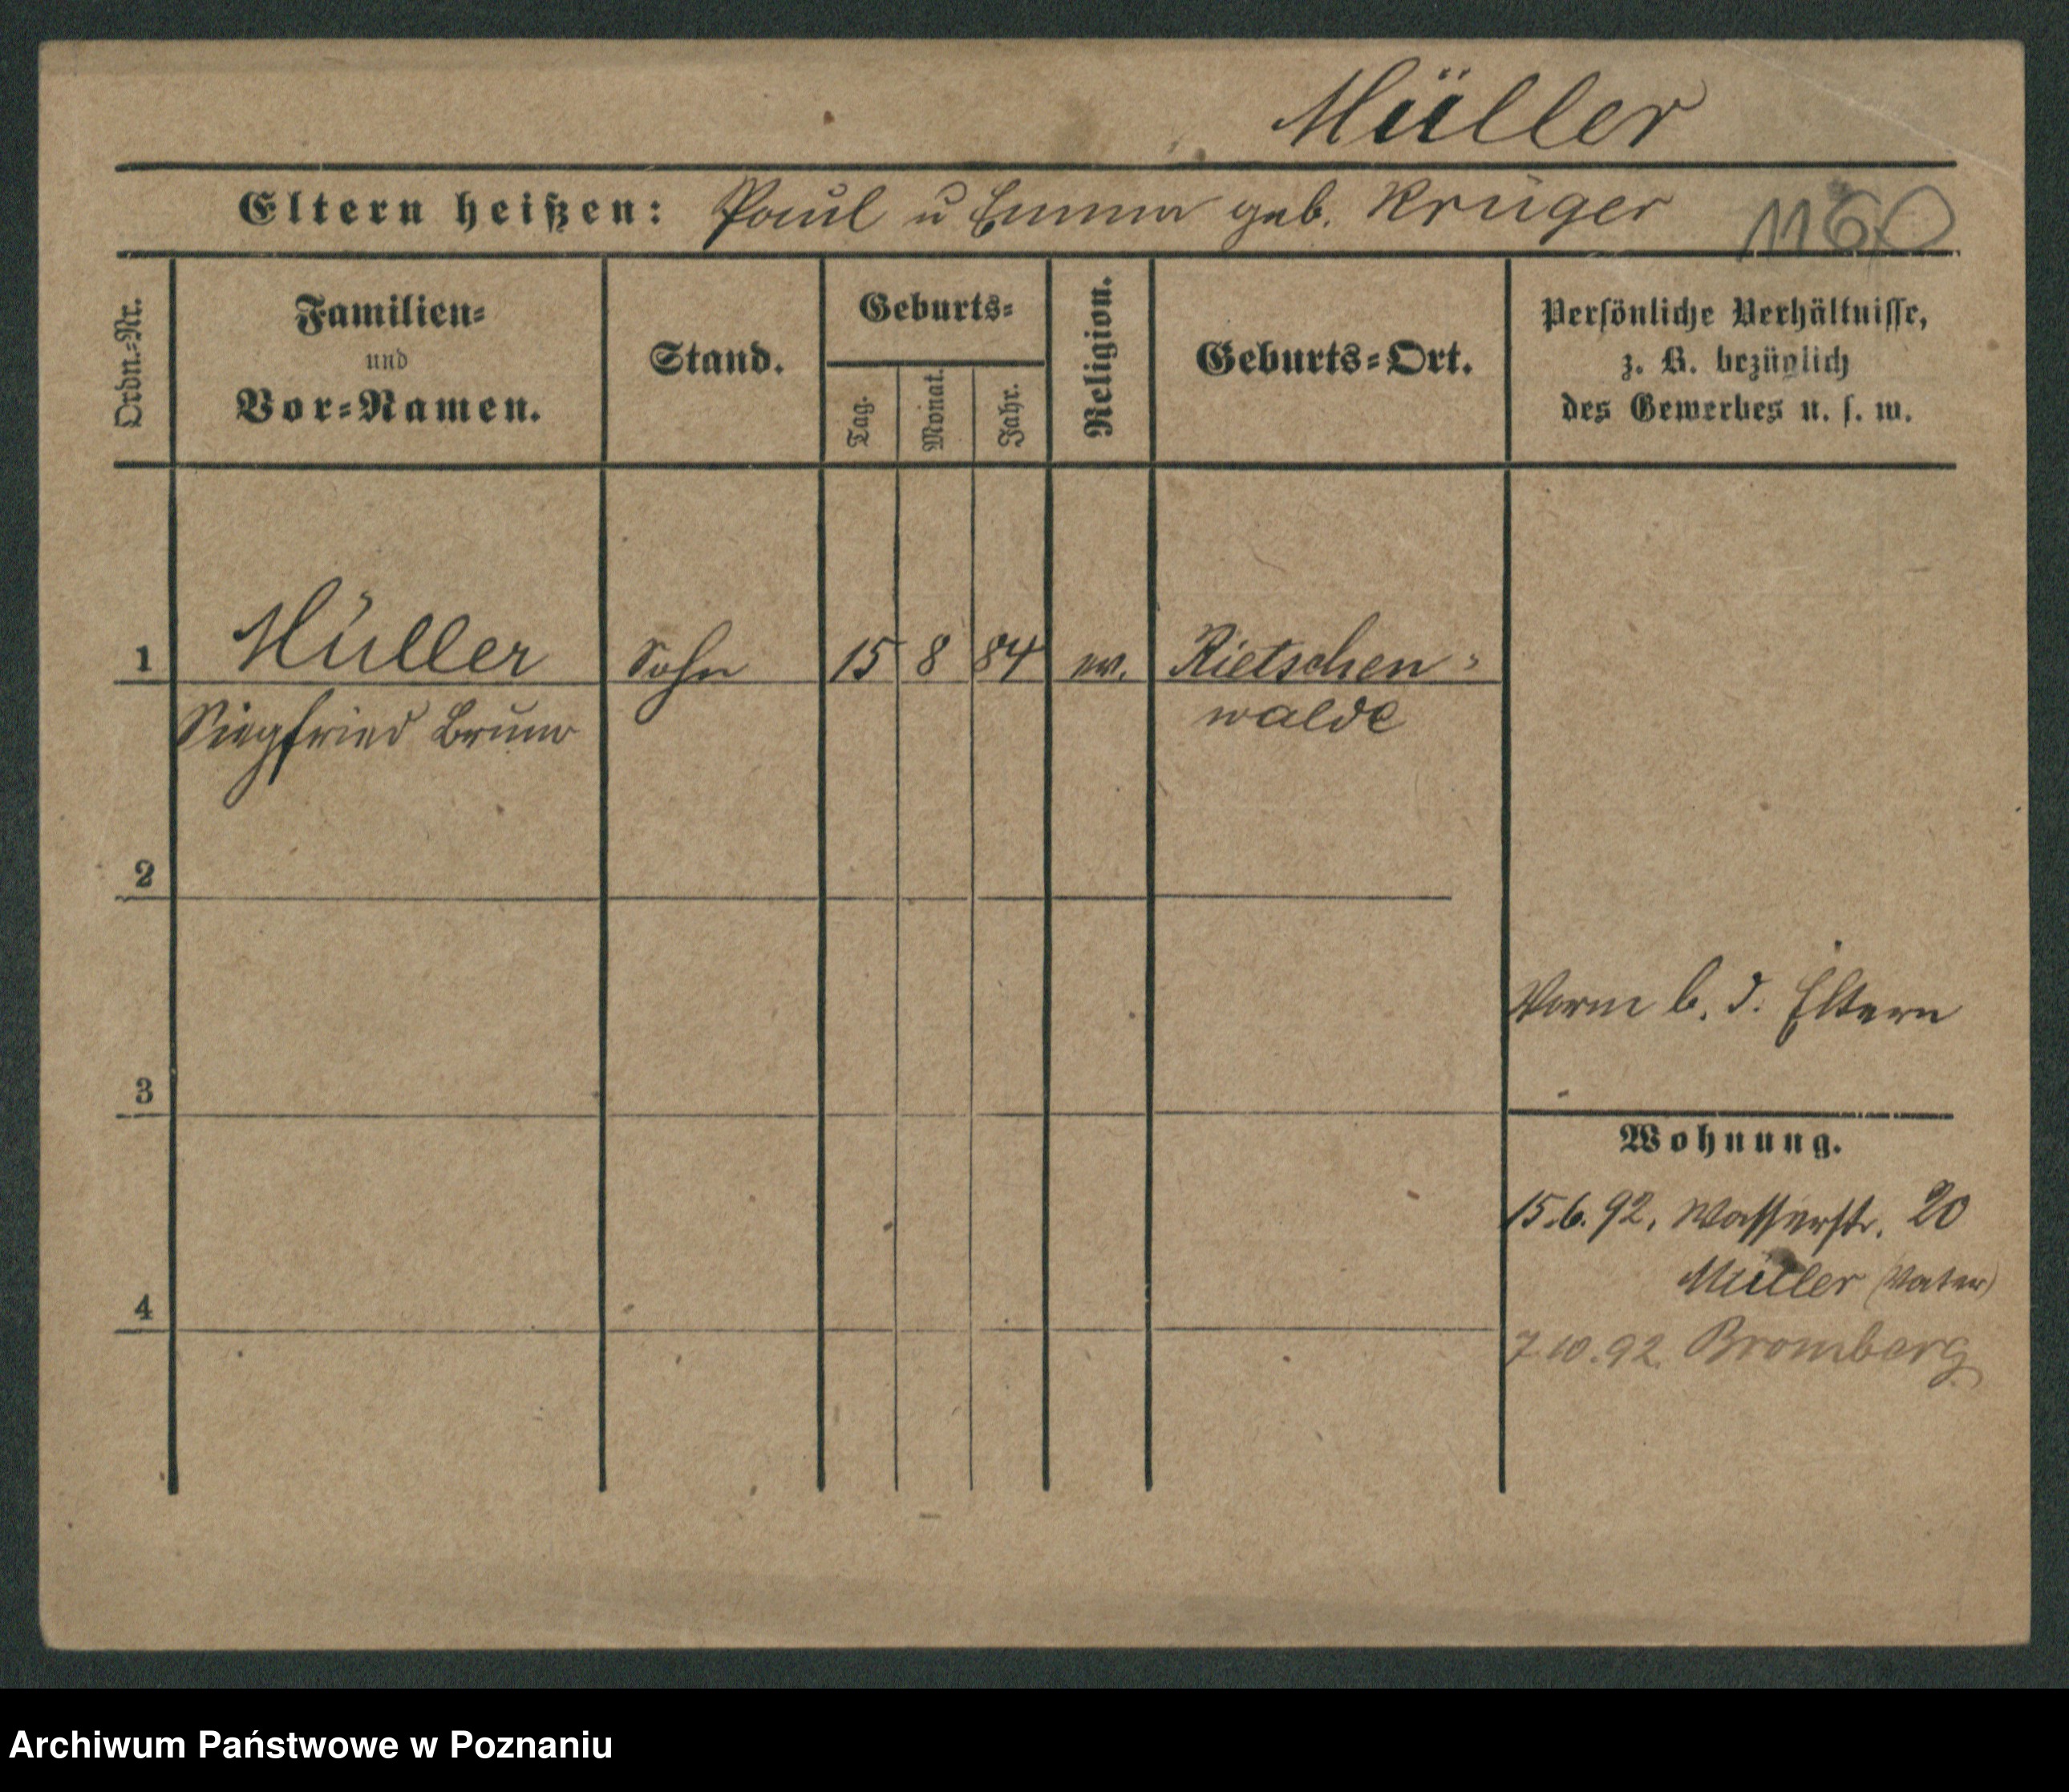 Müller
Eltern heißen: Paul u Emma geb. Krüger 1160
Ordn.-Nr.
Familien-
und
Vor-Namen.
Stand.
Geburts-
Tag.
Monat.
Jahr.
Religion.
Geburts-Ort.
Persönliche Verhältnisse,
z. B. bezüglich
des Gewerbes u. s. w.
1 Müller Sohn 15 8 84 ev. Rietschen-
Siegfried Bruno walde
2
Vorm b. d. Eltern
3
Wohnung.
15.6.92. Wasserstr. 20
Müller (Vater)
4
7.10.92. Bromberg
Archiwum Państwowe w Poznaniu